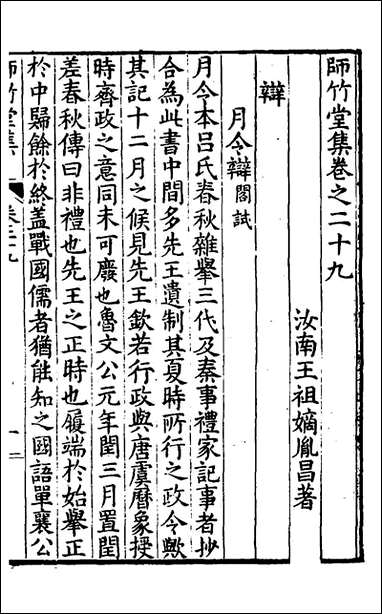 師竹堂集卷之二十九
汝南王祖嫡胤昌著
辯
月令辯閣試
月令本呂氏春秋雜舉三代及秦事禮家記事者抄
合為此書中間多先王遺制其夏時所行之政令歟
其記十二月之候見先王欽若行政與唐虞曆象授
時齊政之意同未可廢也魯文公元年閏三月置閏
差春秋傳曰非禮也先王之正時也履端於始舉正
於中歸餘於終蓋戰國儒者猶能知之國語單襄公
師竹堂集
卷二十九
一